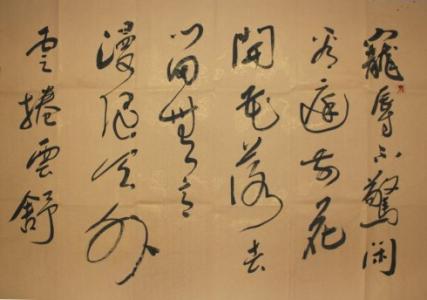 寵辱不驚閑
看庭前花
開花落去
留無意
漫隨天外
雲捲雲舒